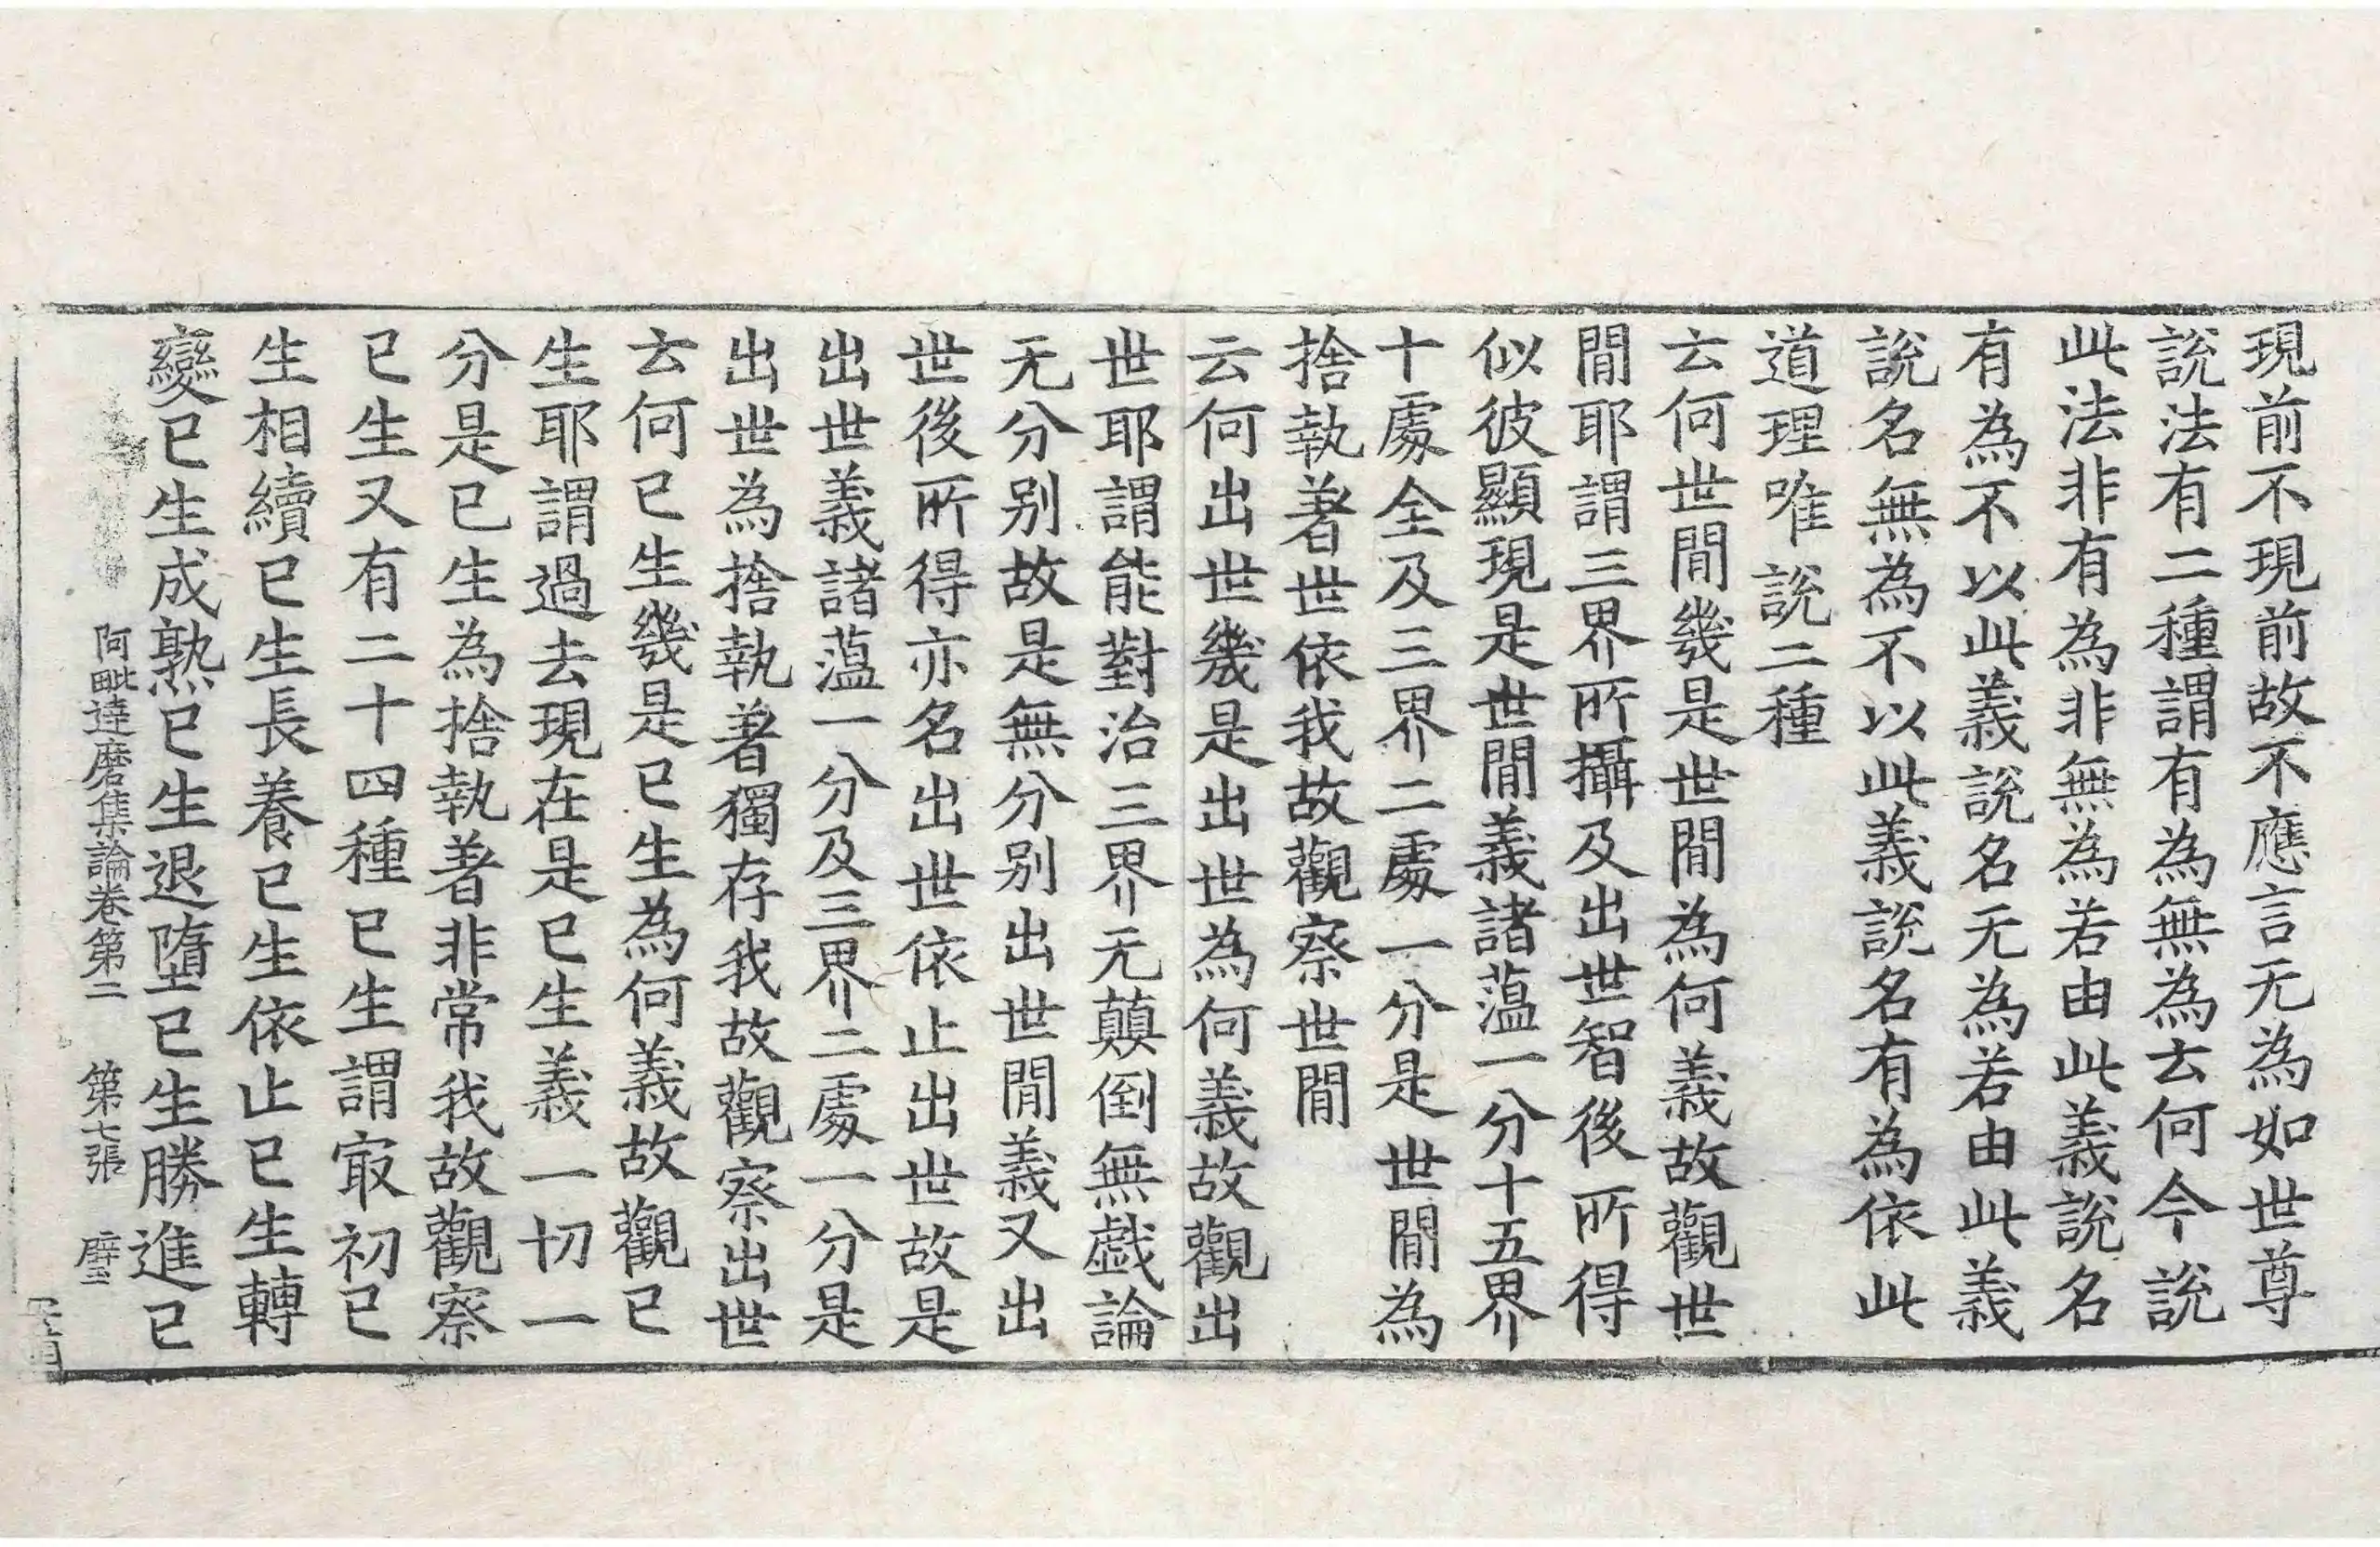 現前不現前故不應言无為如世尊
說法有二種謂有為無為云何今說
此法非有為非無為若由此義說名
有為不以此義說名无為若由此義
說名無為不以此義說名有為依此
道理唯說二種
云何世間幾是世間為何義故觀世
間耶謂三界所攝及出世智後所得
似彼顯現是世間義諸蘊一分十五界
十處全及三界二處一分是世間為
捨執著世依我故觀察世間
云何出世幾是出世為何義故觀出
世耶謂能對治三界无顛倒無戲論
无分別故是無分別出世間義又出
世後所得亦名出世依止出世故是
出世義諸蘊一分及三界二處一分是
出世為捨執著獨存我故觀察出世
云何已生幾是已生為何義故觀已
生耶謂過去現在是已生義一切一
分是已生為捨執著非常我故觀察
已生又有二十四種已生謂㝡初已
生相續已生長養已生依止已生轉
變已生成熟已生退墮已生勝進已
阿毗達磨集論卷第二 第七張 璧